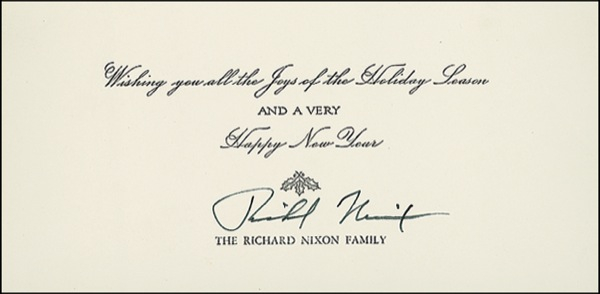 Wishing you all the Joys of the Holiday Season
AND A VERY
Happy New Year
Richard Nixon
THE RICHARD NIXON FAMILY